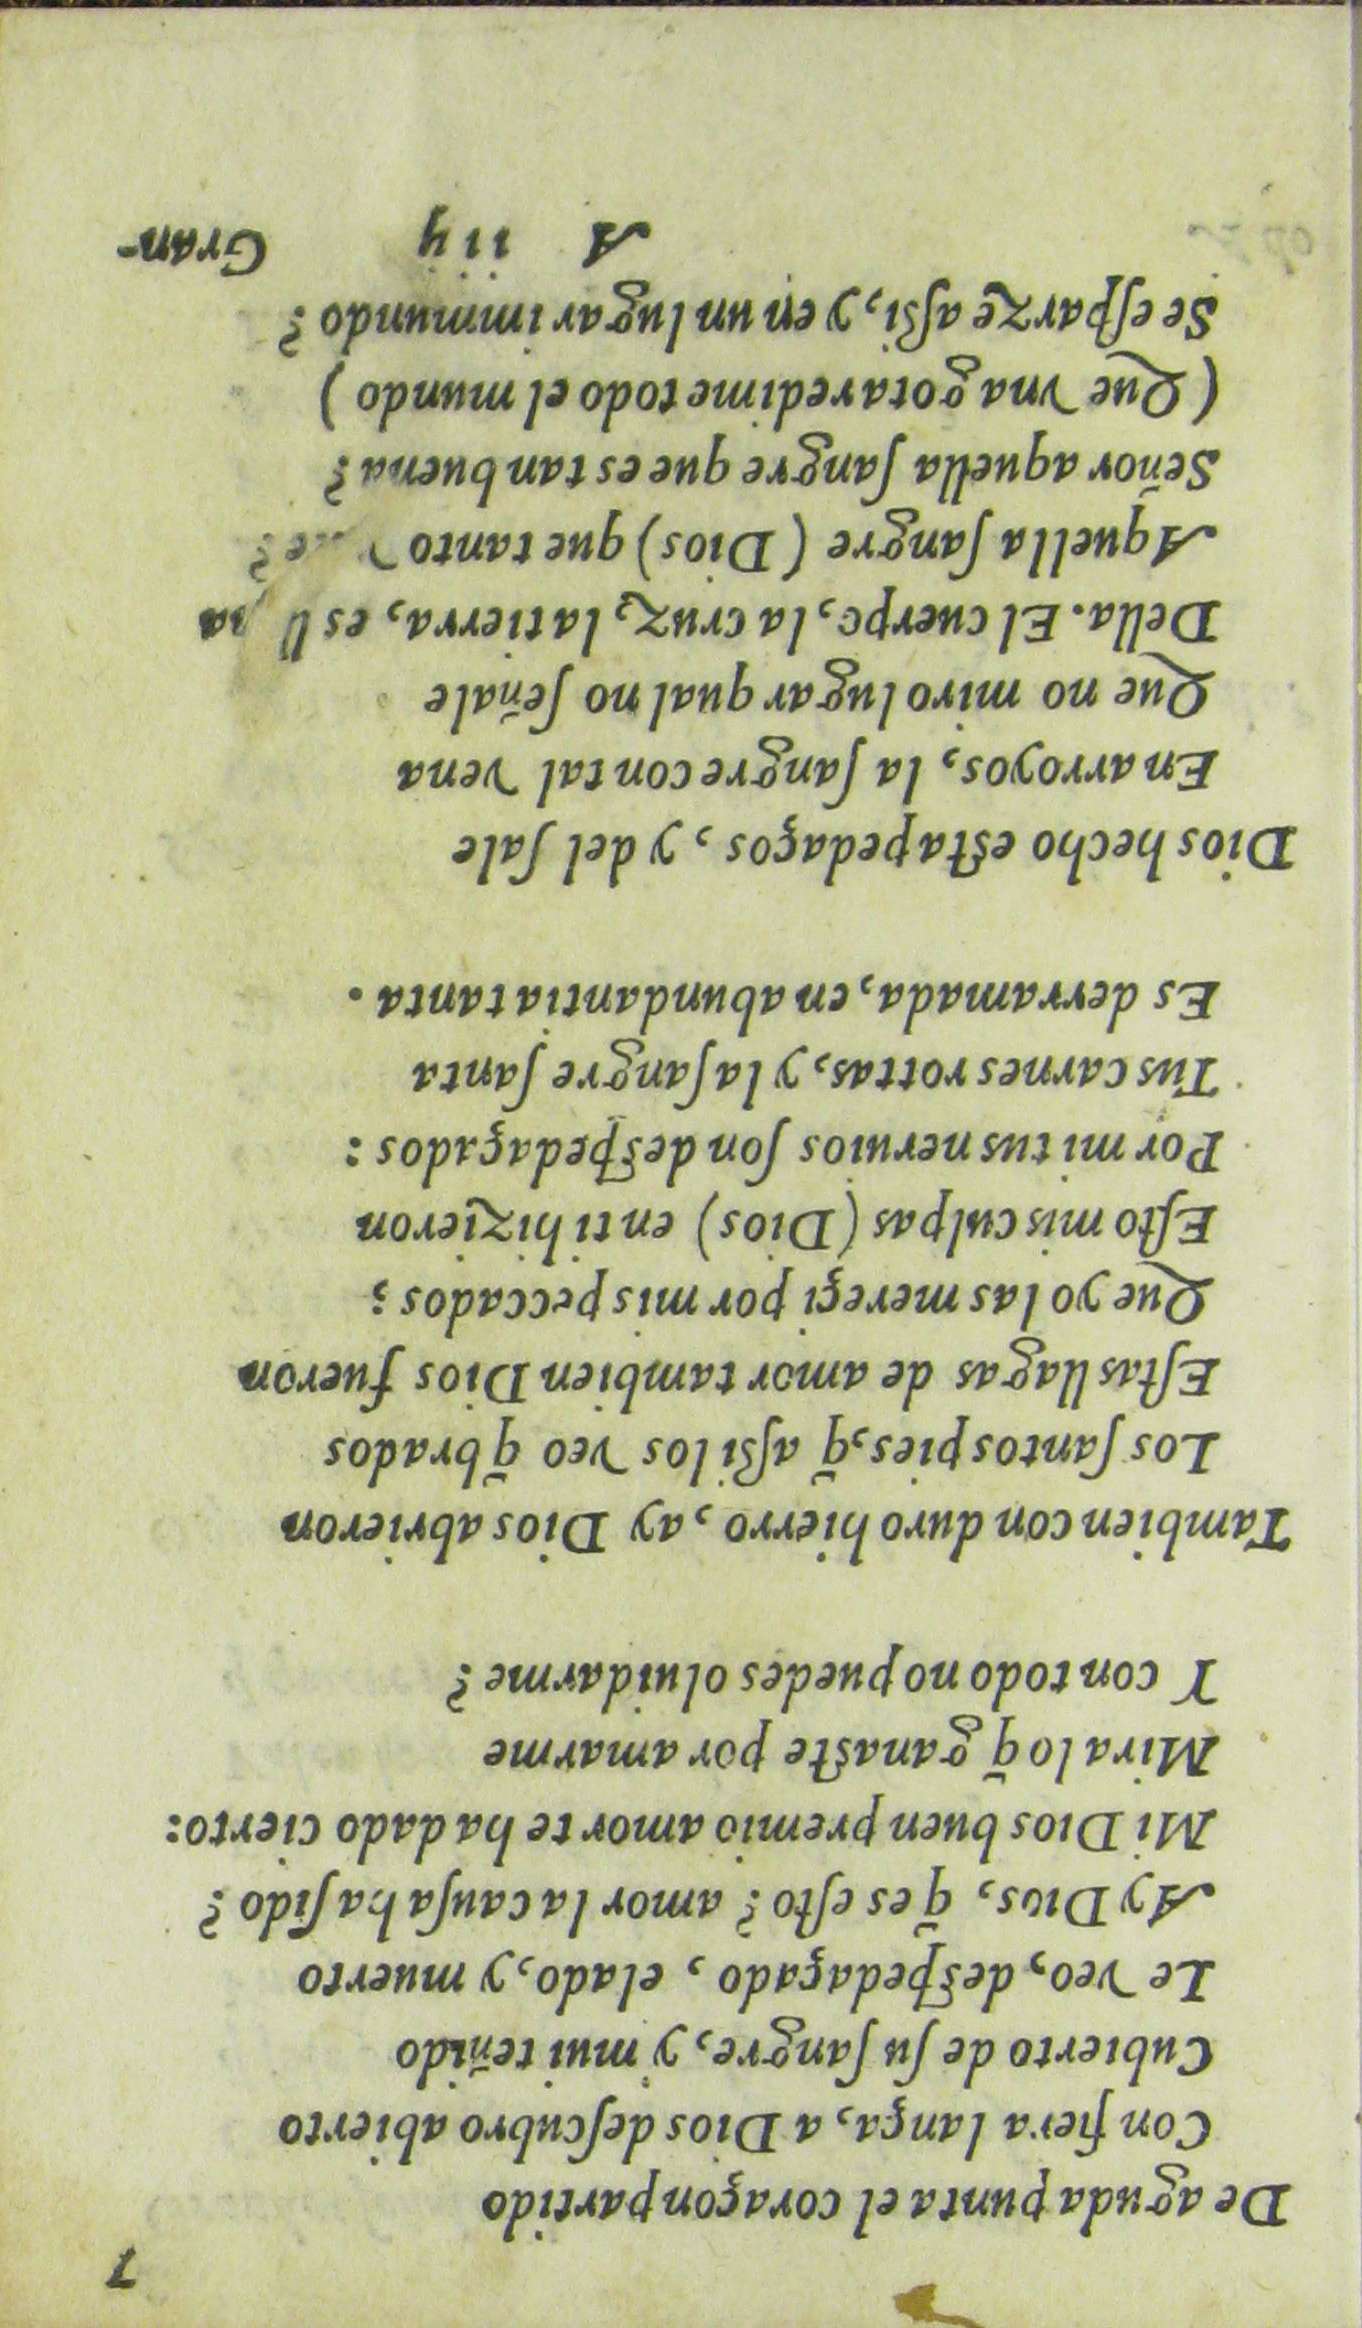 7
De aguda punta el coraçon partido
Con fiera lança, a Dios deſcubro abierto
Cubierto de ſu ſangre, y mui teñido
Le veo, deſpedaçado, elado, y muerto
Ay Dios, q̃ es eſto? amor la cauſa ha ſido?
Mi Dios buen premio amor te ha dado cierto:
Mira lo q̃ ganaſte por amarme
Y con todo no puedes oluidarme?
Tambien con duro hierro, ay Dios abrieron
Los ſantos pies, q̃ aſsi los veo q̃brados
Eſtas llagas de amor tambien Dios fueron
Que yo las mereçi por mis peccados;
Eſto mis culpas (Dios) en ti hizieron
Por mi tus neruios ſon deſpedaçados:
Tus carnes rottas, y la ſangre ſanta
Es derramada, en abundantia tanta.
Dios hecho eſta pedaços, y del ſale
En arroyos, la ſangre con tal vena
Que no miro lugar qual no ſeñale
Della. El cuerpo, la cruz, la tierra, es
Aquella ſangre (Dios) que tanto
Señor aquella ſangre que es tan buena?
(Que vna gota redime todo el mundo)
Se eſparze aſsi, y en un lugar immundo?
A iiij Gran-